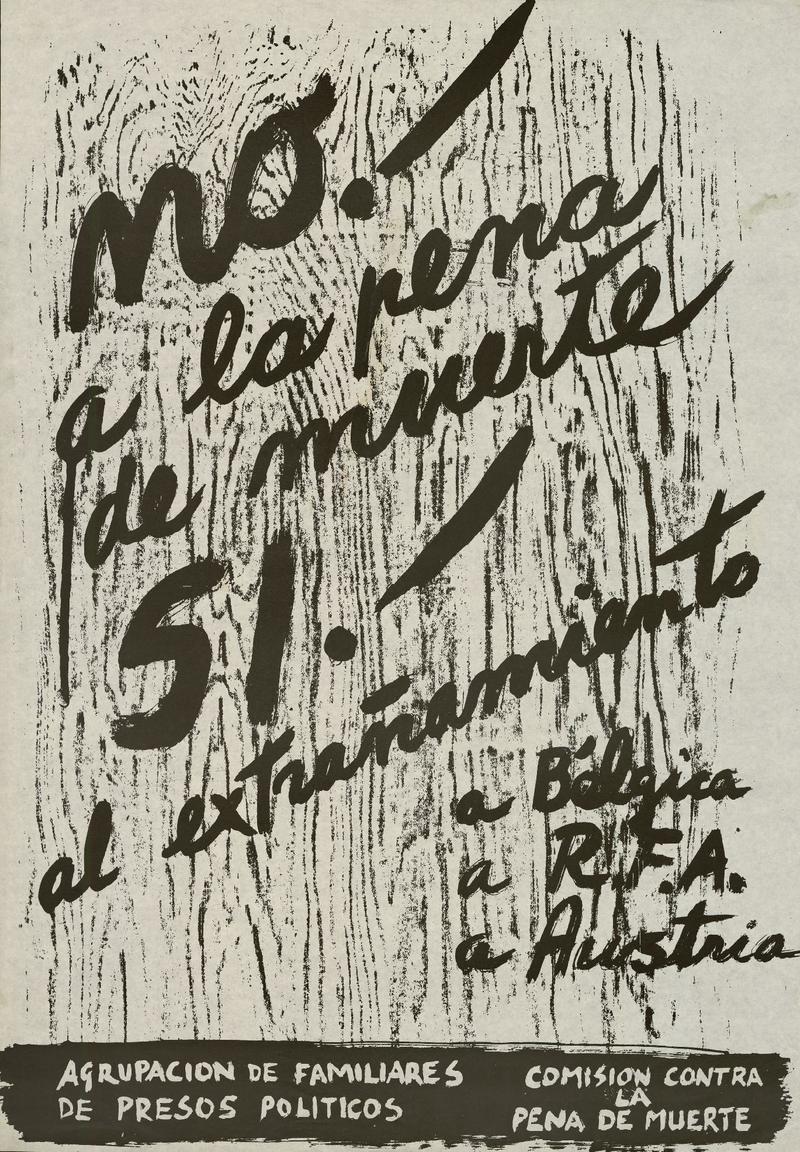 no.
a la pena
de muerte
SI.
al extrañamiento
a Bélgica
a R.F.A.
a Austria
AGRUPACION DE FAMILIARES
DE PRESOS POLITICOS
COMISION CONTRA
LA
PENA DE MUERTE